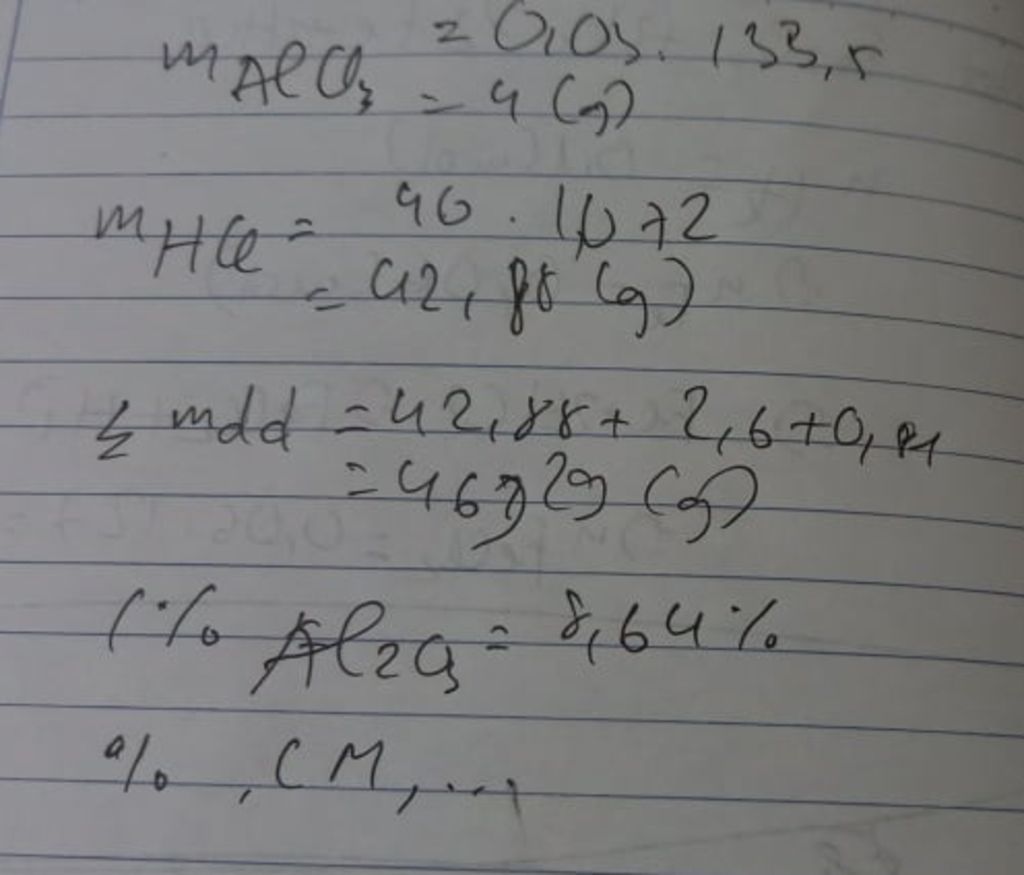 mAlCl3 = 0,03. 133,5
= 4 (g)
mHCl = 40 . 1,072
= 42,88 (g)
≤ mdd = 42,88 + 2,6 + 0,81
= 46,29 (g)
% = 8,64%
%, CM, ...